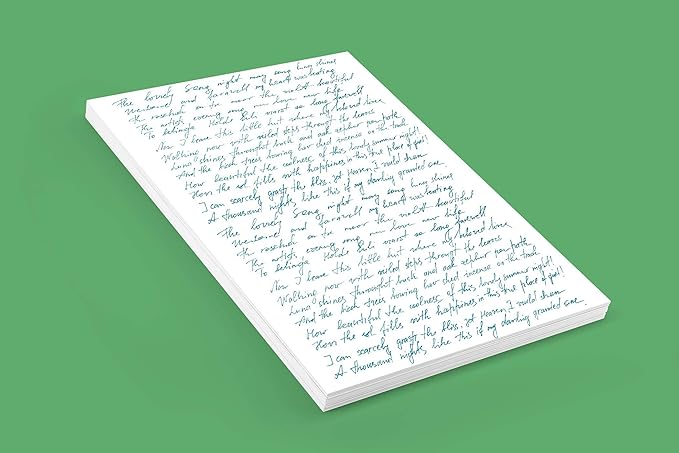 The lovely Song night many song luny shines
and farewell my heart was beating
the rosebush on to near the violett beautiful
The artists evening some new love new life
To belinga Holde Lili worst so long farewell
Now I leave this little hut where my beloved lives
Walking now with veiled steps through the leaves
Luna shines throught bush and oak zephyr per path
And the beech trees bowing low shed incense on the track
How beautiful the coolness of this lovely summer night!
How the soul fills with happiness in this true place of quiet!
I can scarcely grasp the bliss, yet Heaven, I would shun
A thousand nights like this if my darling granted one.
The lovely Song night many song luny shines
and farewell my heart was beating
the rosebush on to near the violett beautiful
The artists evening some new love new life
To belinga Holde Lili worst so long farewell
Now I leave this little hut where my beloved lives
Walking now with veiled steps through the leaves
Luna shines throught bush and oak zephyr per path
And the beech trees bowing low shed incense on the track
How beautiful the coolness of this lovely summer night!
How the soul fills with happiness in this true place of quiet!
I can scarcely grasp the bliss, yet Heaven, I would shun
A thousand nights like this if my darling granted one.